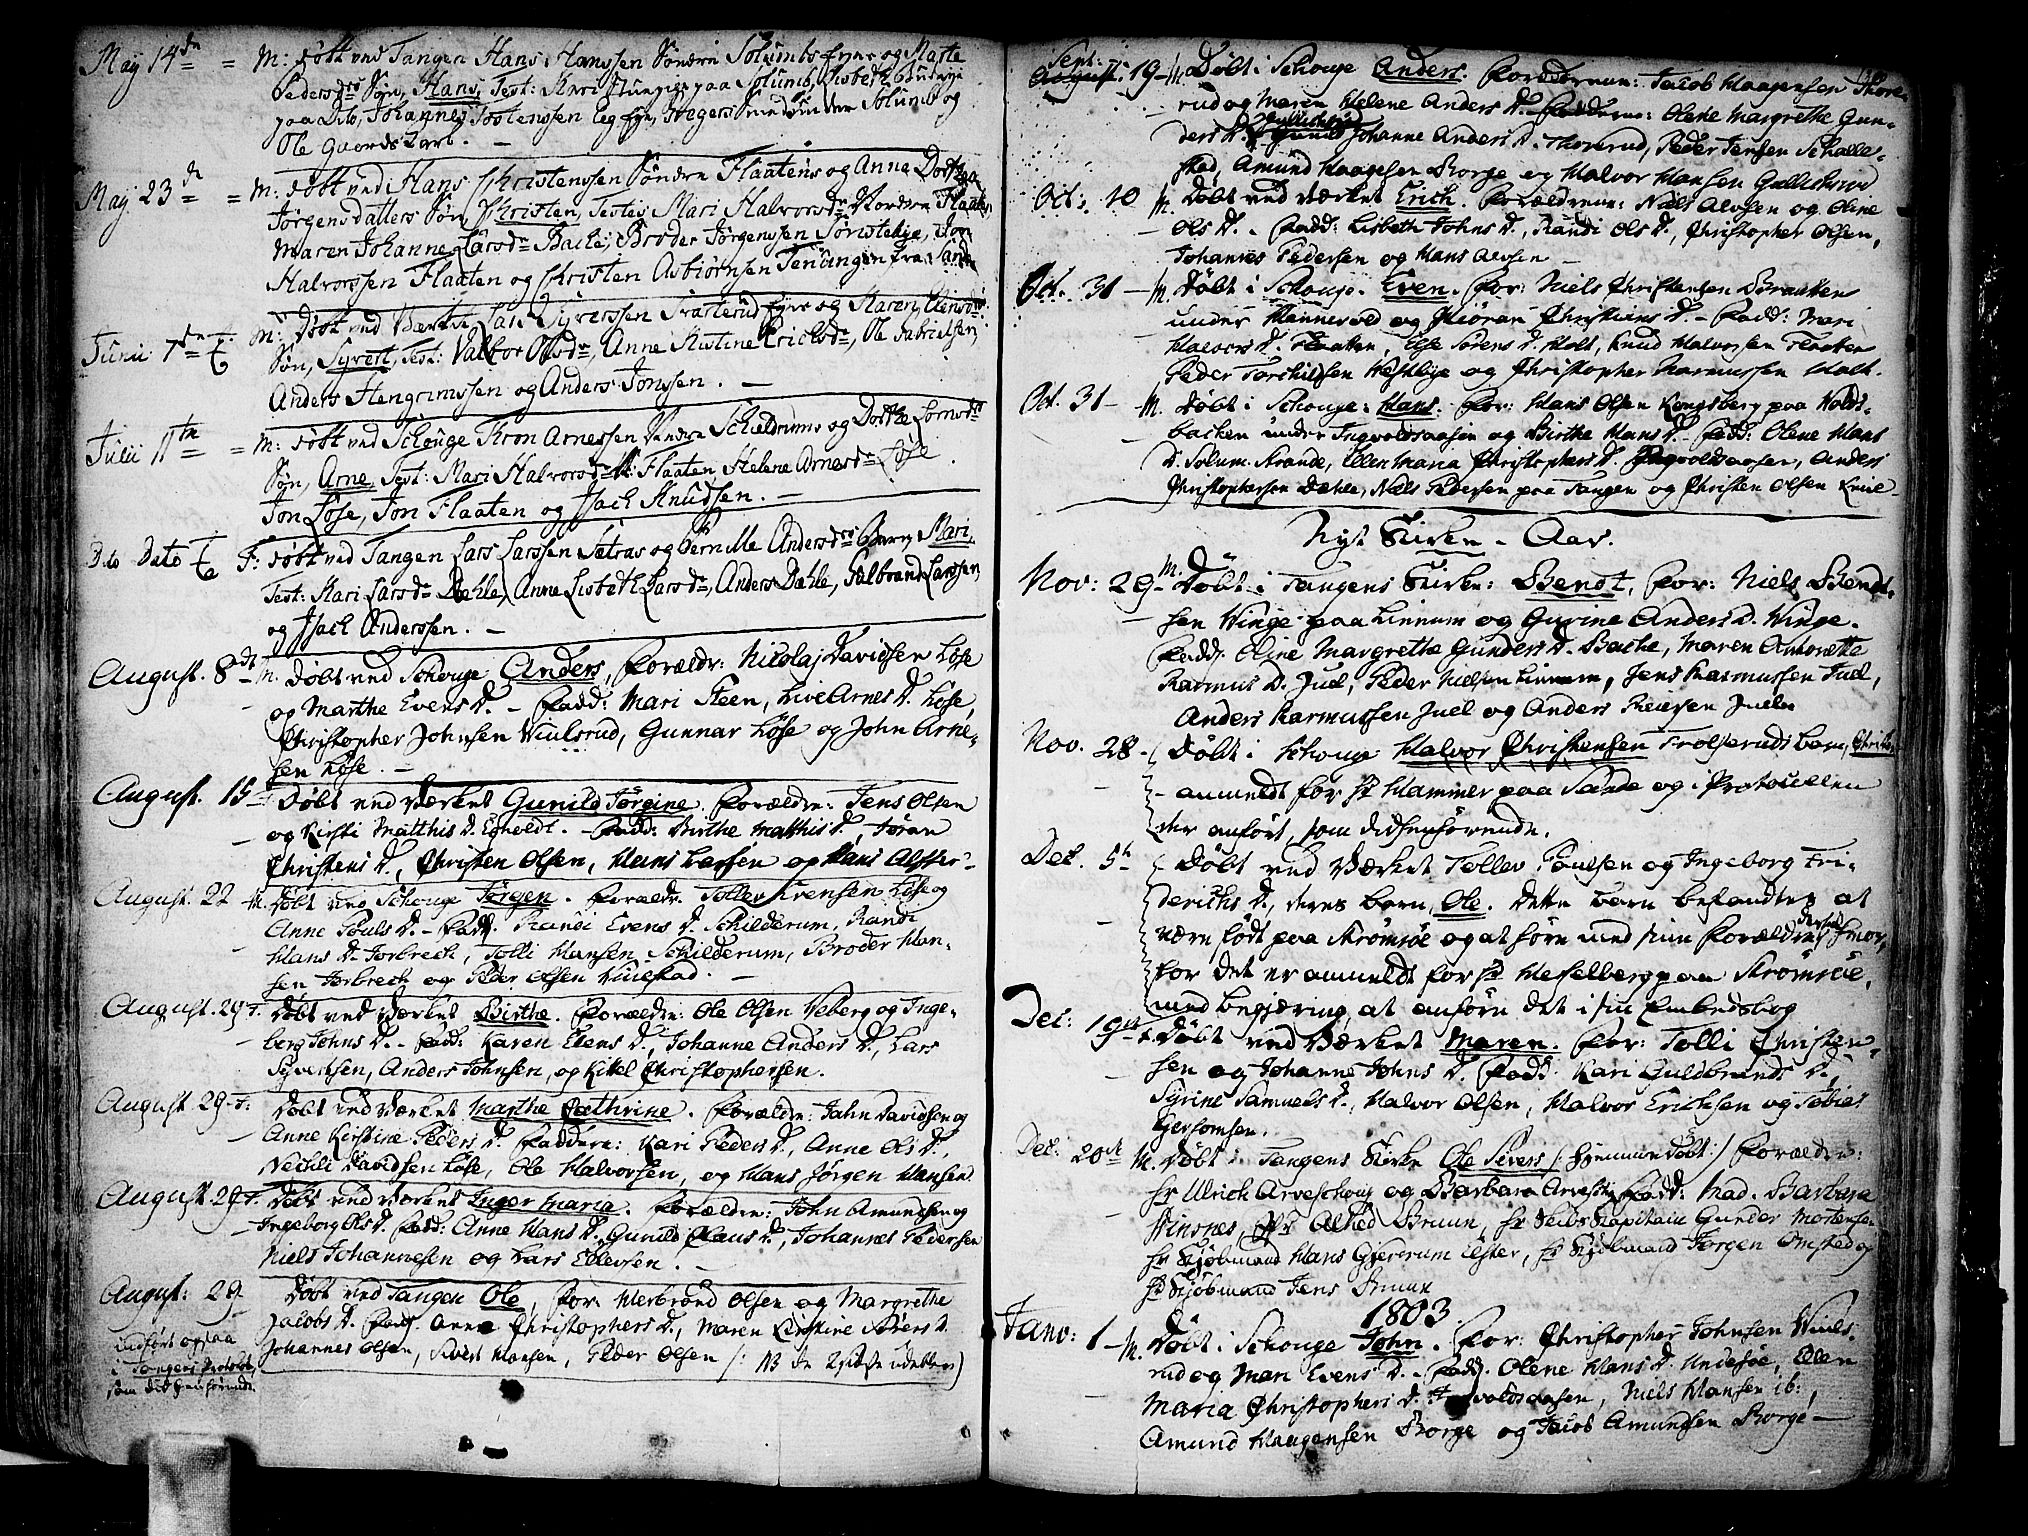 May 14de = M: døbt ved Tangen Hans Hanssen Søndre Solumbs fyre og Marte
Pedersdrs Søn, Hans, Test: Kari paa Solumb, Lisbeth
paa Dito, Johannes Tostenssen Eegfyr, under Solumb og
Ole Gaardskarl. –
May 23de = M: døbt ved Hans Christenssen Søndre Flaatens og Anne Dorthea
Jørgensdatters Søn, Christen, Testes Mari Halvorsdr Nordre Flaaten,
Maren Johanne Larsdr Bache, Broder Jørgenssen Søristebye, Jon
Halvorssen Flaaten og Christen Asbiørnsen fra Sande
Junii 7de M: Døbt ved Værket fyre og Karen
Søn, Syvert, Test: Valbor Olsdr, Anne Kistine Ericksdr, Ole Gabrielsen,
Anders Hengrimssen og Anders Jonssen. –
Julii 11te = M: døbt ved Schouge Tron Arnessen Søndre Schieldrums og Dorthe
Søn, Arne, Test: Mari Halvorsdr N: Flaaten Helene Arnesdr Løse.
Jon Løse, Jon Flaaten og Isach Knudssen. –
Dito Dato F: døbt ved Tangen Lars Larssen Sætras og Pernille Andersdrs Barn, Mari,
Test: Kari Larsdr Dæhle, Anne Lisbeth Larsdr, Anders Dæhle, Gulbrand Larssen,
og Isach Anderssen. –
August. 8de M. Døbt ved Schouge Anders, Forældr: Nicolaj Davidsen Løse
og Marthe Evens D. – Fadd: Mari Steen, Live Arnes D. Løse,
Christopher Johnsen Viulsrud, Gunnar Løse og John Arne-
sen Løse. –
August. 15 – Døbt ved Værket Gunild Jørgine. Forældre: Jens Olsen
og Kirsti Matthis D. Egholdt. – Fadd: Birthe Matthis D., Jøran
Christens D., Christen Olsen, Hans Larsen og Hans
August. 22 – M. Døbt ved Schouge Jørgen. Forældr. Tollev Evensen Løse og
Anne Pouls D. – Fadd. Randi Evens D. Schilderum, Randi
Hans D. Forbrech, Tolli Hansen Schilderum, Broder Han-
sen Forbrech og Peder Olsen Viulstad. –
August. 29 F. Døbt ved Værket Birthe. Forældre: Ole Olsen Veberg og Inge-
berg Johns D. – Fadd: Karen Evens D., Johanne Anders D., Lars
Syvertsen, Anders Johnsen, og Kittel Christophersen.
August. 29 F. Døbt ved Værket Marthe Cathrine. Forældre: John Davidsen og
Anne Kirstine Peders D. Faddere: Kari Peders D., Anne Ols D.,
Davidsen Løse, Ole Halvorsen, og Hans Jørgen Hansen.
August. 29 F. Døbt ved Værket Inger Maria. Forældre: John Amundsen og
Ingeborg Ols D. Fadd: Anne Hans D., Gunild Claus D., Johannes Pedersen
Niels Johannesen og Lars Ellevsen. –
August: 29. Døbt ved Tangen Ole, For: Herbrand Olsen og Margrethe
Jacobs D. Fadd. Anne Christophers D., Maren Kirstine Sørens D.
Johannes Olsen, Sivert Hansen, Peder Olsen
indført ogsaa
i Tangens Protokol,
som did henhørende.
Sept:
August. 19 – M. Døbt i Schouge Anders. Forældrene: Jacob Haagensen Thore-
rud og Maren Helene Anders D. Faddere: Olene Margrethe Gun-
ders D. Johanne Anders D. Thorerud, Peder Jensen Schalle-
stad, Amund Haagensen Borge og Halvor Hansen Gullichsrud
Oct. 10 M. Døbt ved Værket Erich. Forældrene: Niels Alvsen og Oline
Ols D. – Fadd: Lisbeth Johns D., Randi Ols D., Christopher Olsen,
Johannes Pedersen og Hans Alvsen –
Oct. 31 – M. Døbt i Schouge. Even. For: Niels Christensen Braaten
under Hannevold og Christens D. – Fadd: Mari
Halvors D. Flaaten, Else Sørens D. Holt, Knud Halvorsen Flaaten
Peder Torchildsen Westbye og Christopher Rasmussen Holt.
Oct. 31 – M. Døbt i Schouge: Hans. For: Hans Olsen Kongsberg paa Volds-
backen under Ingvoldsaasen og Birthe Hans D. – Fadd: Olene Hans
D. Solum Strande, Ellen Maria Christophers D. Ingvoldsaasen, Anders
Christophersen Dæhle, Niels Pedersen paa Tangen og Christen Olsen
Nyt Kirke – Aar.
Nov: 29 – M. Døbt i Tangens Kirke: Bendt, For: Niels Bendt-
sen Winge paa Linnum og Gurine Anders D. Winge.
Fadd. Oline Margrethe Gunders D. Bache, Maren Antonette
Rasmus D. Juel, Peder Nielsen Linnum, Jens Rasmussen Juel,
Anders Rasmussen Juel og Anders Reiersen Juel
Nov. 28. – Døbt i Schouge Halvor Christensen Trolserud's barn, Christen
– anmeldt for Hr Hammer paa Sande og i Protocollen
der anført, som did henhørende.
Dec. 5te – Døbt ved Værket Tollev Poulsen og Ingeborg Fri-
derichs D., deres barn, Ole. Dette barn befandtes at
være født paa Strømsøe og at høre med sine Forældre dertil,
for det er anmeldt for Hr Hesselberg paa Strømsøe,
med begjæring, at anføre det i sin Embedsbog
Dec: 19de F. Døbt ved Værket Maren. For: Tolli Christen-
sen og Johanne Johns D. Fadd: Kari Guldbrands D.,
Syrine Samuels D., Halvor Olsen, Halvor Erichsen og Tobias
Gersomsen.
Dec: 20de M. Døbt i Tangens Kirke Ole Sivers /: hjemmedøbt :/ Forældre:
Hr Ulrich Arveschoug og Barbara Fadd: Mad. Barbara
Hinsnes, Bruun, Hr Skibs Kapitain Gunder Mortensen
Hr Kjøbmand Hans Gjererum Elster, Hr Kjøbmand Jørgen Omsted og
Hr Kjøbmand Jens Bruun
1803
Janv: 1 – M. Døbt i Schouge John. For: Christopher Johnsen Viuls-
rud og Mari Evens D. – Fadd. Olene Hans D. Undesøe, Ellen
Maria Christophers D. Ingvoldsaasen, Niels Hansen ib:,
Amund Haagensen Borge og Jacob Amundsen Borge –